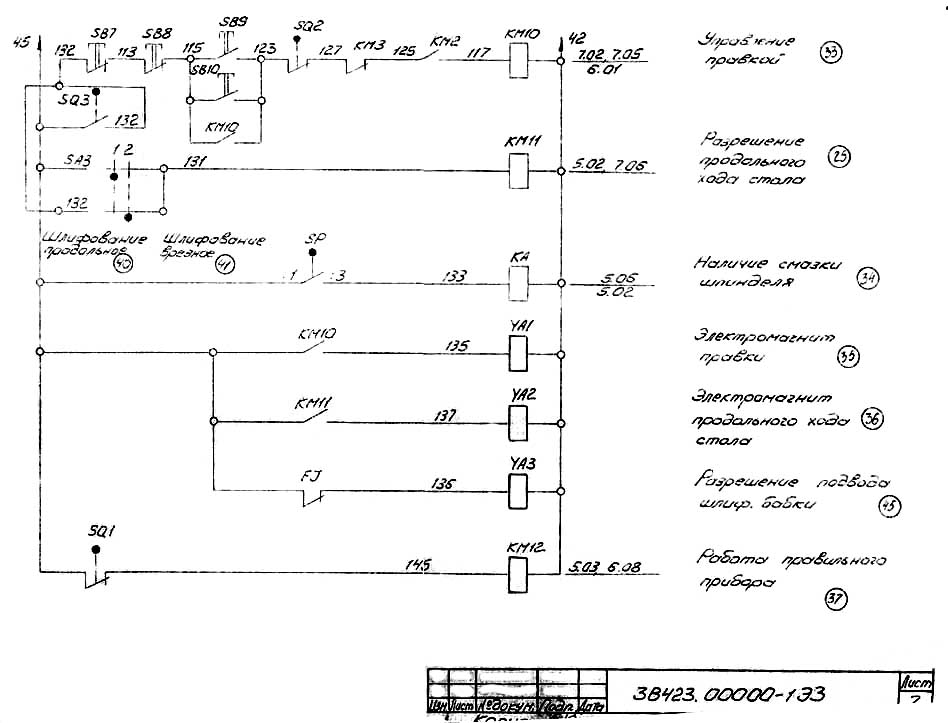 45 132 SB7 113 SB8 115 SB9 123 SQ2 127 KM3 125 KM2 117 KM10 42 7.02, 7.05
6.01
Управление
правкой 33
SB10
SQ3
132
KM10
SA3 1 2 131 KM11 5.02, 7.06
Разрешение
продольного 25
хода стола
132
Шлифование
продольное 40
Шлифование
врезное 41
SP
1 3 133 KA 5.05
5.02
Наличие смазки
шпинделя 34
KM10 135 YA1
Электромагнит
правки 35
KM11 137 YA2
Электромагнит
продольного хода 36
стола
FJ 136 YA3
Разрешение подвода
шлиф. бабки 45
SQ1 145 KM12 5.03, 6.08
Работа правильного
прибора 37
3В423.00000-1ЭЗ
Лист
Изм Лист № докум. Подп. Дата